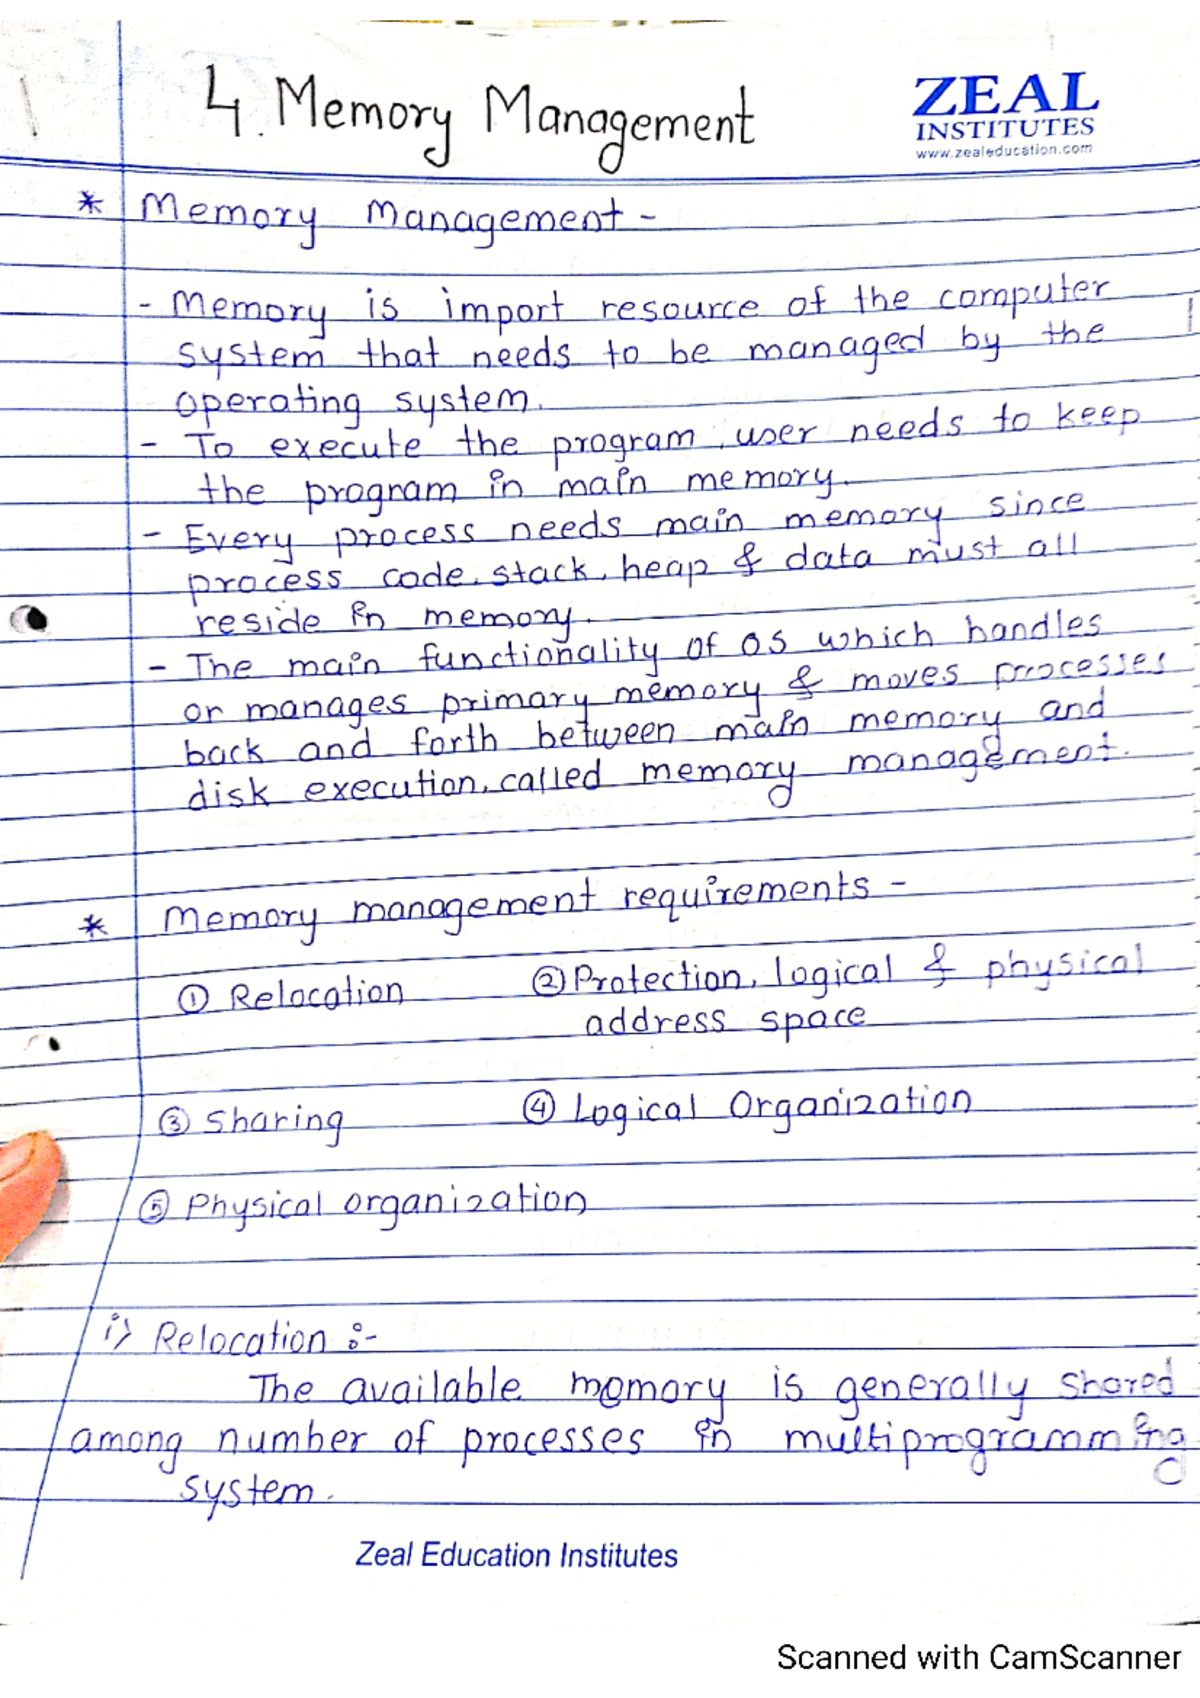 4. Memory Management
ZEAL
INSTITUTES
www.zealeducation.com
* Memory Management -
- Memory is import resource of the computer
system that needs to be managed by the
operating system.
- To execute the program, user needs to keep
the program in main memory.
- Every process needs main memory since
process code, stack, heap & data must all
reside in memory.
- The main functionality of OS which handles
or manages primary memory & moves processes
back and forth between main memory and
disk execution, called memory management.
* Memory management requirements -
① Relocation ② Protection, logical & physical
address space
③ Sharing ④ Logical Organization
⑤ Physical organization
i) Relocation :-
The available memory is generally shared
among number of processes in multiprogramming
system.
Zeal Education Institutes
Scanned with CamScanner